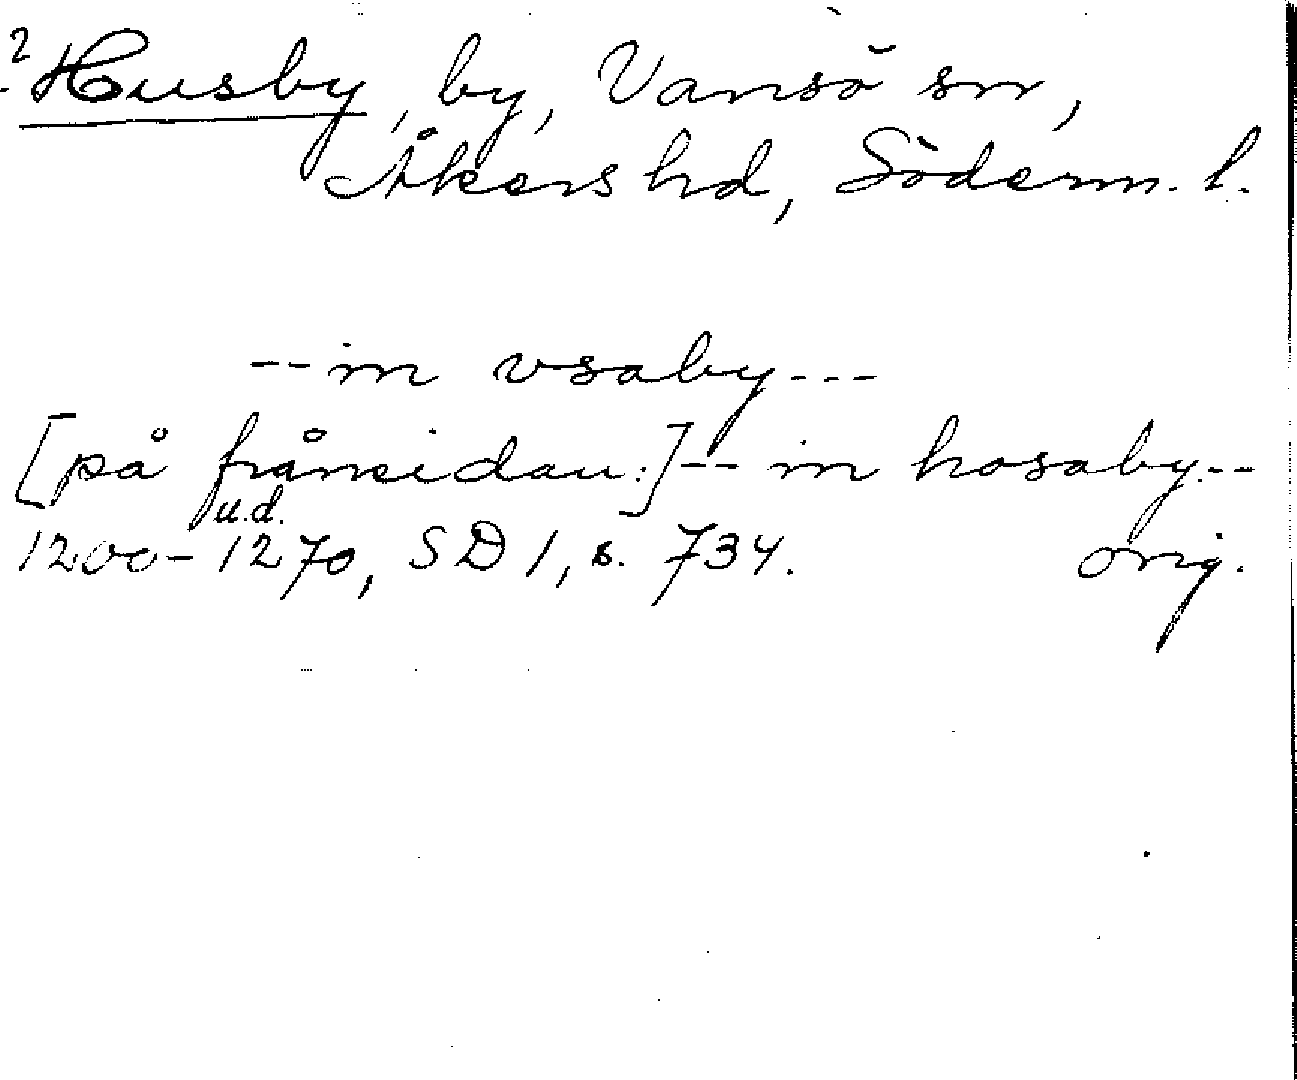 ? Husby, by, Vansö sn,
Åkers hd, Söderm. l.
-- in vsaby ---
[på frånsidan:] -- in hosaby --
u.d.
1200-1270, SD 1, s. 734. orig.